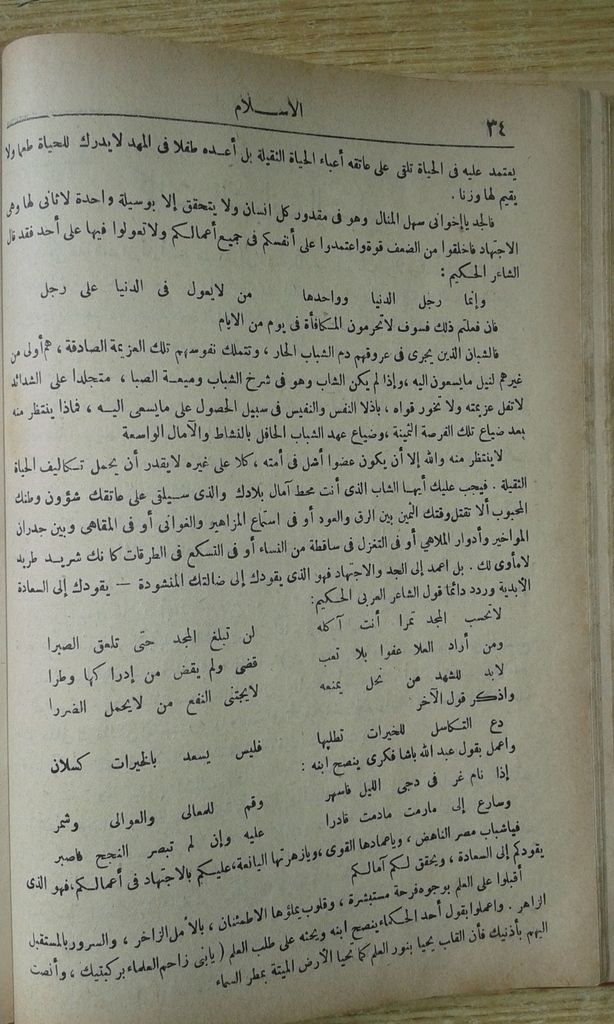 ٣٤
الاسلام
يعتمد عليه فى الحياة تلقى على عاتقه أعباء الحياة الثقيلة بل أعده طفلا فى المهد لايدرك للحياة طعما ولا
يقيم لها وزنا .
فالجد ياإخوانى سهل المنال وهو فى مقدور كل انسان ولا يتحقق إلا بوسيلة واحدة لاثانى لها وهى
الاجتهاد فاخلقوا من الضعف قوة واعتمدوا على أنفسكم فى جميع أعمالكم ولا تعولوا فيها على أحد فقد قال
الشاعر الحكيم :
وإنما رجل الدنيا وواحدها من لايعول فى الدنيا على رجل
فان فعلتم ذلك فسوف لاتحرمون المكافأة فى يوم من الايام
فالشبان الذين يجرى فى عروقهم دم الشباب الحار ، وتتملك نفوسهم تلك العزيمة الصادقة ، هم أولى من
غيرهم لنيل مايسعون اليه ، وإذا لم يكن الشاب وهو فى شرخ الشباب وميعة الصبا ، متجلدا على الشدائد
لاتفل عزيمته ولا تخور قواه ، باذلا النفس والنفيس فى سبيل الحصول على مايسعى اليه ، فماذا ينتظر منه
بعد ضياع تلك الفرصة الثمينة ، وضياع عهد الشباب الحافل بالنشاط والآمال الواسعة
لاينتظر منه والله إلا أن يكون عضوا أشل فى أمته ، كلا على غيره لايقدر أن يحمل تكاليف الحياة
الثقيلة . فيجب عليك أيها الشاب الذى أنت محط آمال بلادك والذى سيلقى على عاتقك شؤون وطنك
المحبوب ألا تقتل وقتك الثمين بين الرق والعود أو فى استماع المزاهير والغوانى أو فى المقاهى وبين جدران
المواخير وأدوار الملاهي أو فى التغزل فى ساقطة من النساء أو فى التسكع فى الطرقات كانك شريد طريد
لامأوى لك . بل اعمد إلى الجد والاجتهاد فهو الذى يقودك إلى ضالتك المنشودة — يقودك إلى السعادة
الأبدية وردد دائما قول الشاعر العربى الحكيم :
لاتحسب المجد تمرا أنت آكله لن تبلغ المجد حتى تلعق الصبرا
ومن أراد العلا عفوا بلا تعب قضى ولم يقض من إدراكها وطرا
لابد للشهد من نحل يمنعه لايجتنى النفع من لايحمل الضررا
واذكر قول الآخر
دع التكاسل للخيرات تطلبها فليس يسعد بالخيرات كسلان
واعمل بقول عبد الله باشا فكرى ينصح ابنه :
إذا نام غر فى دجى الليل فاسهر وقم للمعالى والعوالى وشمر
وسارع إلى مارمت مادمت قادرا عليه وإن لم تبصر النجح فاصبر
فياشباب مصر الناهض ، وياعمادها القوى ، ويازهرتها اليانعة، عليكم بالاجتهاد فى أعمالكم، فهو الذى
يقودكم إلى السعادة ، ويحقق لكم آمالكم
أقبلوا على العلم بوجوه فرحة مستبشرة ، وقلوب يملؤها الاطمئنان ، بالأمل الزاخر ، والسرور بالمستقبل
الزاهر . واعملوا بقول أحد الحكماء ينصح ابنه ويحثه على طلب العلم ( يابنى زاحم العلماء بركبتيك ، وأنصت
اليهم بأذنيك فأن القلب يحيا بنور العلم كما تحيا الأرض الميتة بمطر السماء